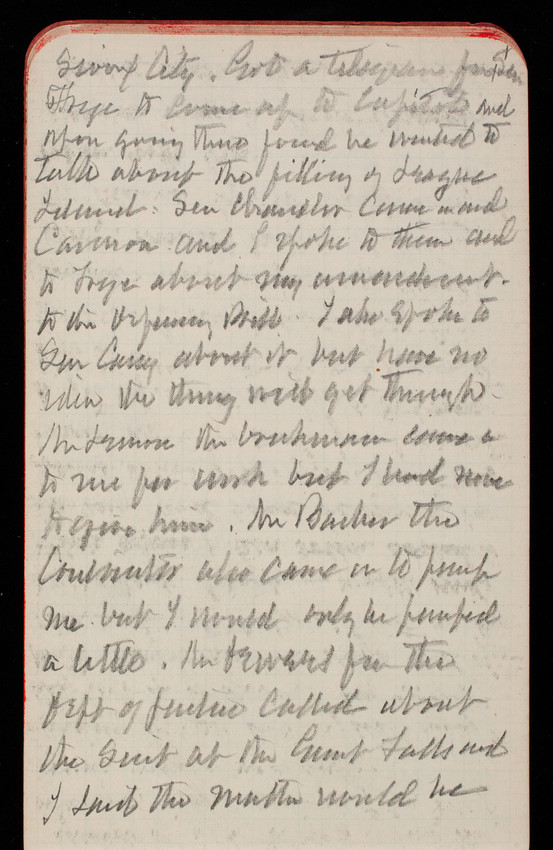 Sioux City. Got a telegram from Sen
Frye to come up to Capitol and
upon going there found he wanted to
talk about the filling of League
Island. Sen Chandler came in and
Cameron and I spoke to them and
to Frye about my amendment
to the Deficiency Bill. I also spoke to
Sen Casey about it but have no
idea the thing will get through.
Mr the came
to me for work but I had none
to give him. Mr Barker the
Contractor also came in to pump
me but I would only be pumped
a little. Mr from the
Dept of Justice called about
the Suit at the Great Falls and
I said the matter would be